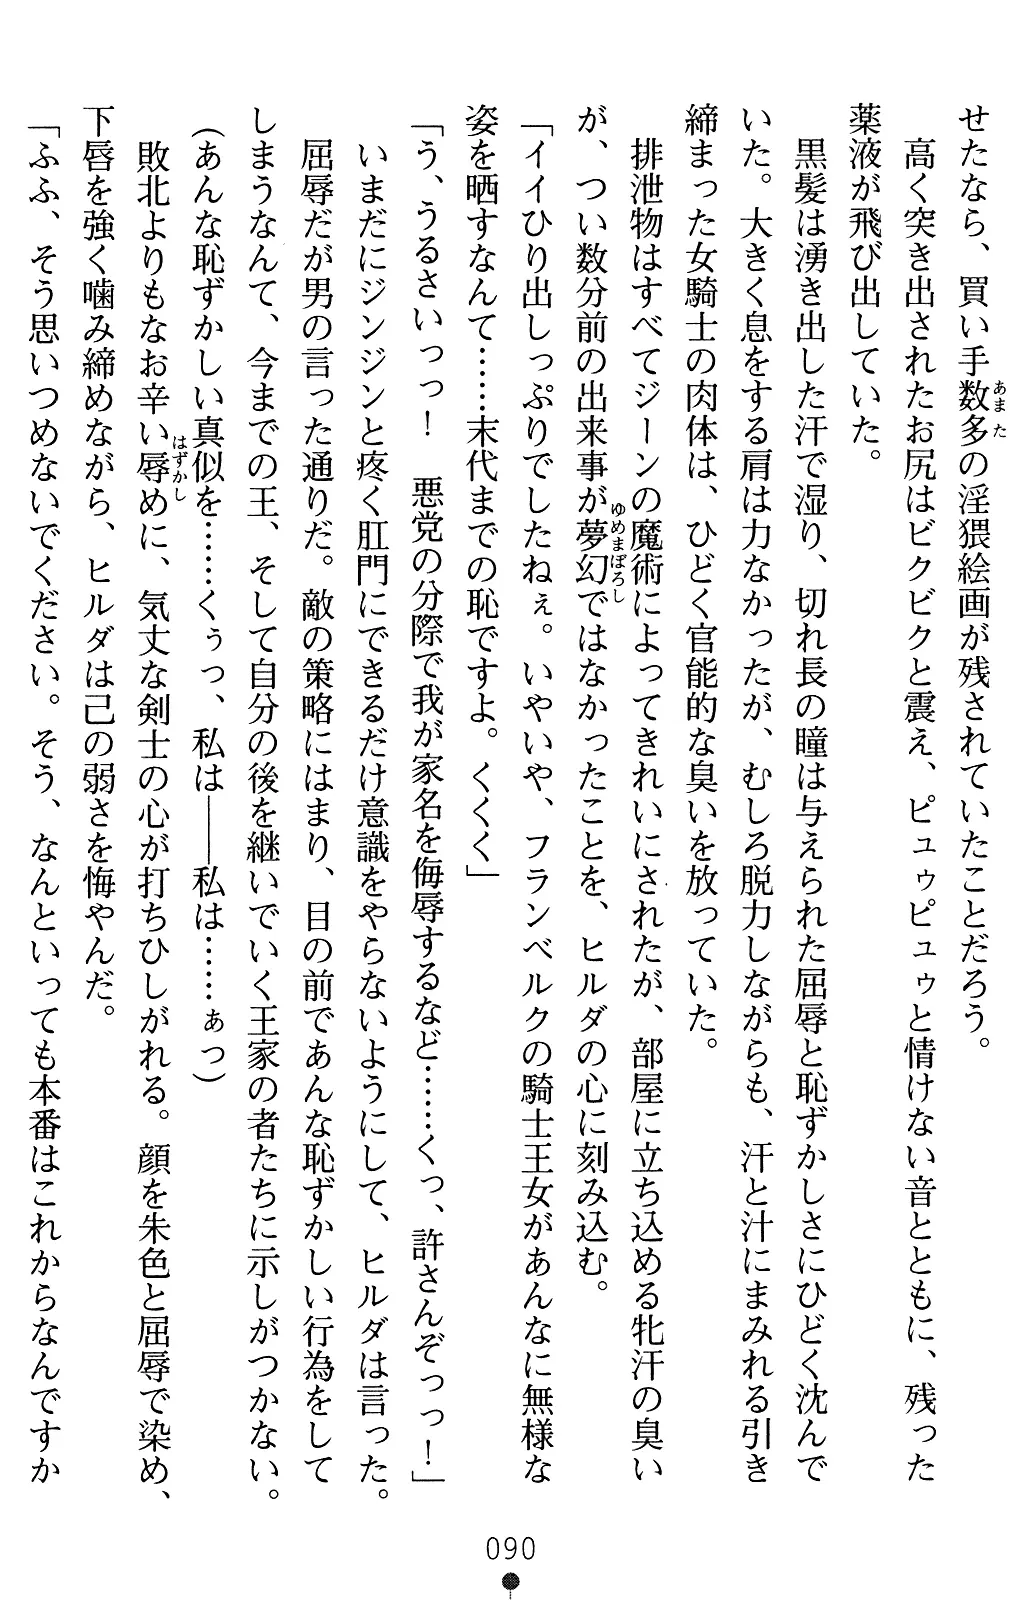 せたなら、買い手数多の淫猥絵画が残されていたことだろう。
高く突き出されたお尻はビクビクと震え、ピュゥピュゥと情けない音とともに、残った
薬液が飛び出していた。
黒髪は湧き出した汗で湿り、切れ長の瞳は与えられた屈辱と恥ずかしさにひどく沈んで
いた。大きく息をする肩は力なかったが、むしろ脱力しながらも、汗と汁にまみれる引き
締まった女騎士の肉体は、ひどく官能的な臭いを放っていた。
排泄物はすべてジーンの魔術によってきれいにされたが、部屋に立ち込める牝汗の臭い
が、つい数分前の出来事が夢幻ではなかったことを、ヒルダの心に刻み込む。
「イイひり出しっぷりでしたねぇ。いやいや、フランベルクの騎士王女があんなに無様な
姿を晒すなんて……末代までの恥ですよ。くくく」
「う、うるさいっっ！　悪党の分際で我が家名を侮辱するなど……くっ、許さんぞっっ！」
いまだにジンジンと疼く肛門にできるだけ意識をやらないようにして、ヒルダは言った。
屈辱だが男の言った通りだ。敵の策略にはまり、目の前であんな恥ずかしい行為をして
しまうなんて、今までの王、そして自分の後を継いでいく王家の者たちに示しがつかない。
（あんな恥ずかしい真似を……くぅっ、私は――私は……ぁっ）
敗北よりもなお辛い辱めに、気丈な剣士の心が打ちひしがれる。顔を朱色と屈辱で染め、
下唇を強く噛み締めながら、ヒルダは己の弱さを悔やんだ。
「ふふ、そう思いつめないでください。そう、なんといっても本番はこれからなんですか
090